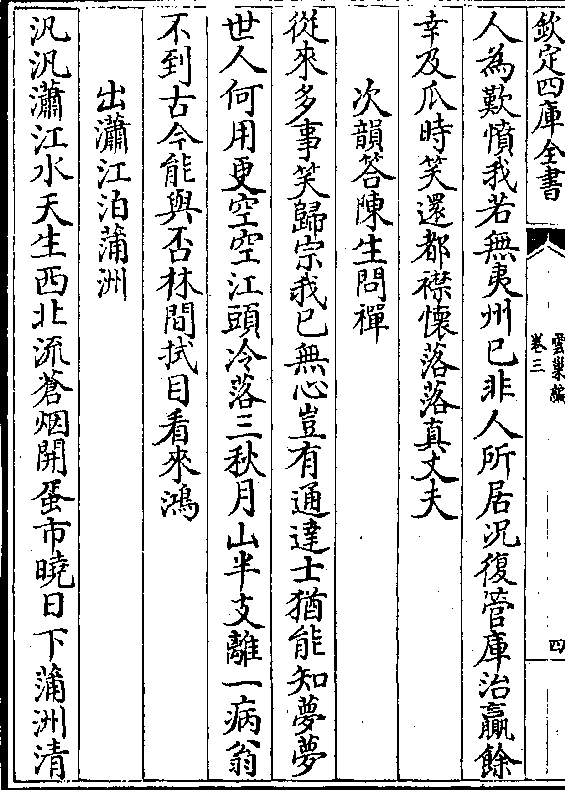 欽定四庫全書
雲巢編
卷三
四
人為歎憤我若無夷州已非人所居況復管庫治贏餘
幸及瓜時笑還都襟懷落落真丈夫
次韻答陳生問禪
從來多事笑歸宗我已無心豈有通達士猶能知夢夢
世人何用更空空江頭冷落三秋月山半支離一病翁
不到古今能與否林間拭目看來鴻
出瀟江泊蒲洲
汎汎瀟江水天生西北流蒼烟開蛋市曉日下蒲洲清